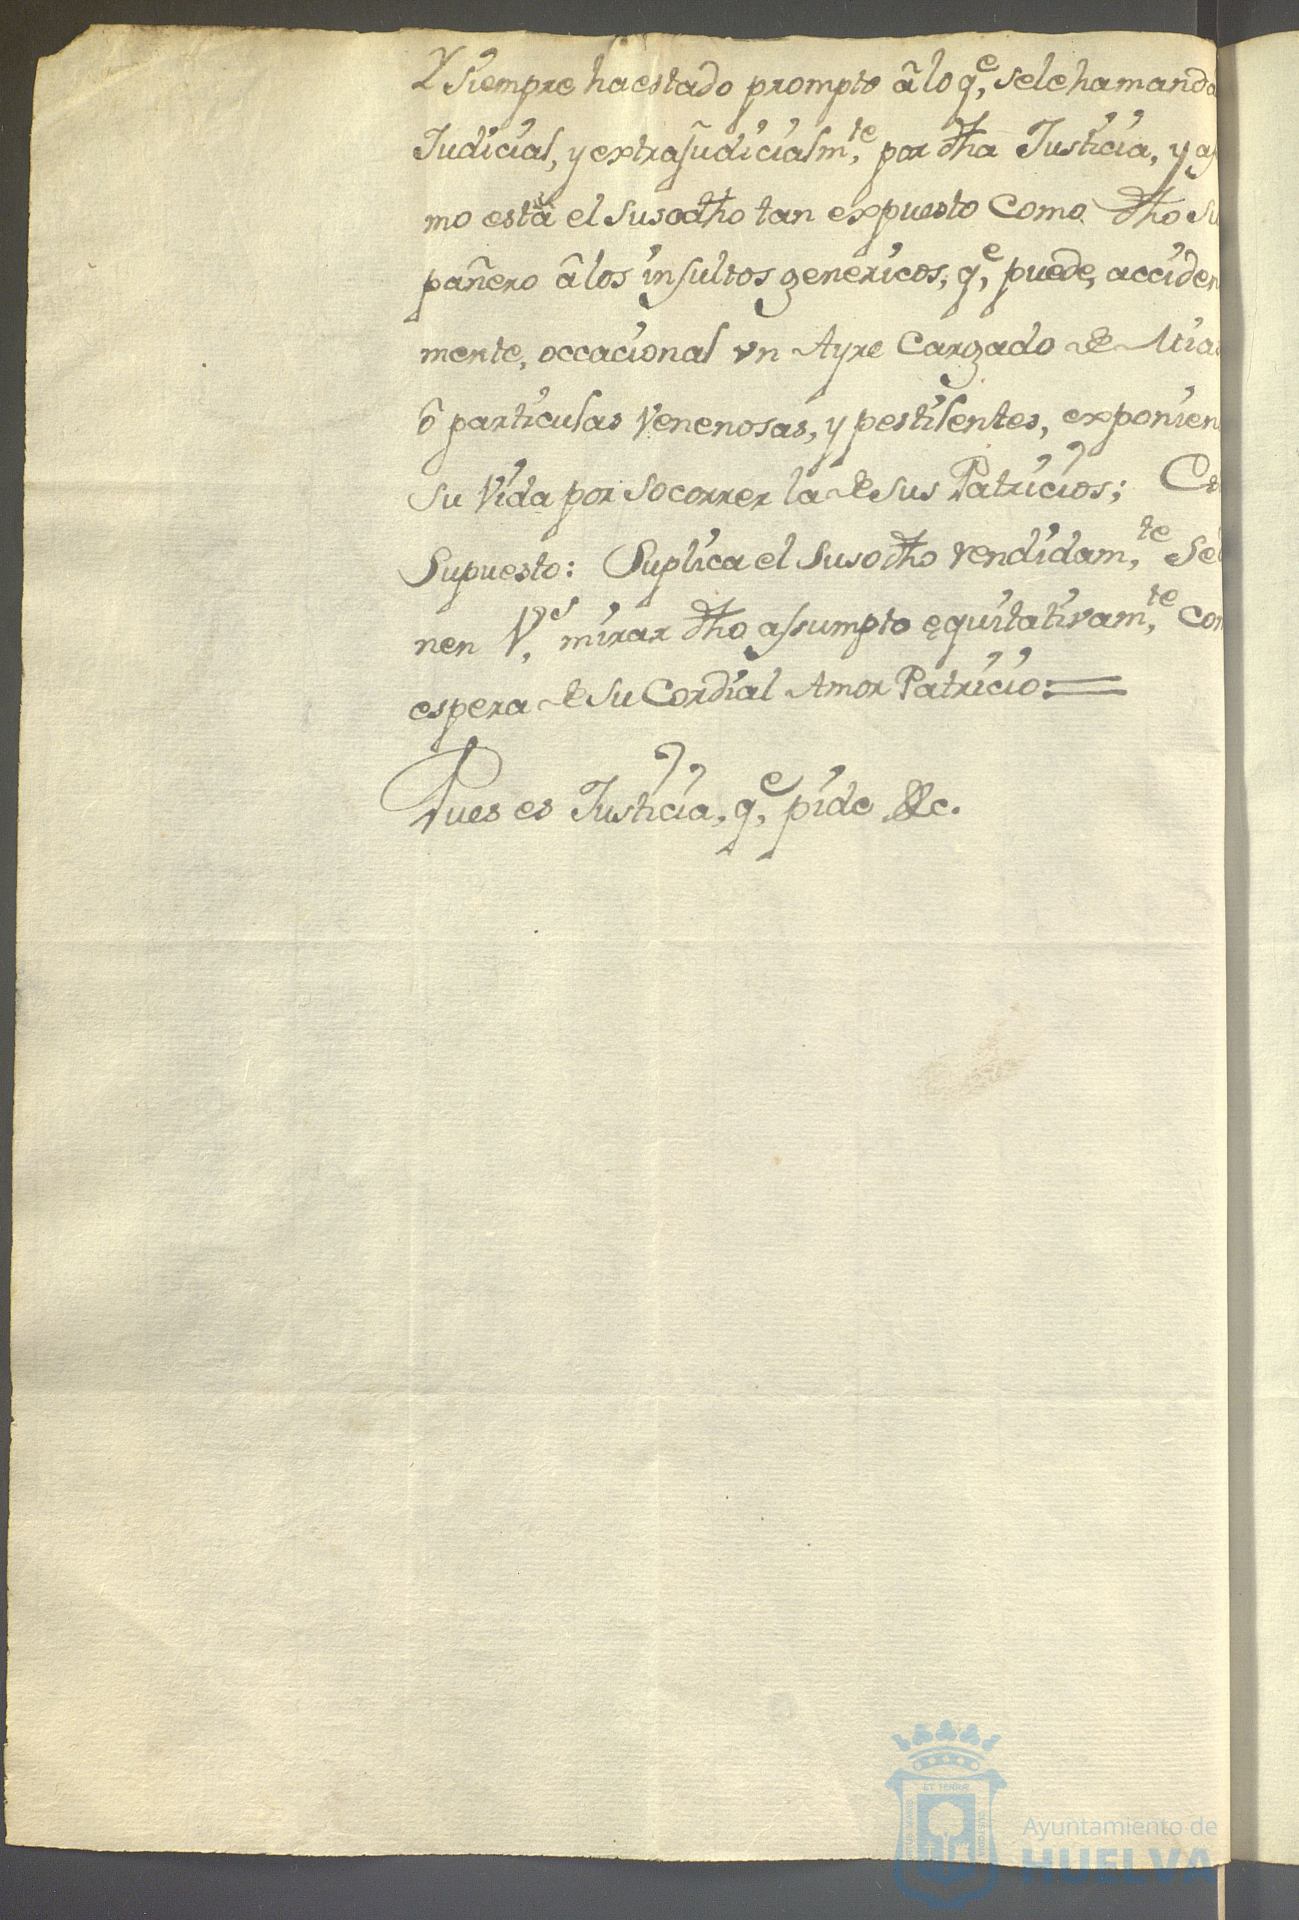 Y siempre ha estado prompto â lo q.e se le ha manda
Judicial, y extrajudicialm.te por dha Justicia, y as
mo està el Susodho tan expuesto Como dho Su
pañero â los insultos genericos, q.e puede, acciden
mente, occacional vn Ayre Cargado de Mia
ô particulas Venenosas, y pestilentes, exponien
Su Vida por Socorrer la de Sus Patricios; Co
Supuesto: Suplica el Susodho rendidam.te Se
nen V.s mirar dho assumpto equitativam.te con
espera de Su Cordial Amor Patricio:=
Pues es Justicia, q.e pide &c.
ET TERRÆ
Ayuntamiento de
HUELVA